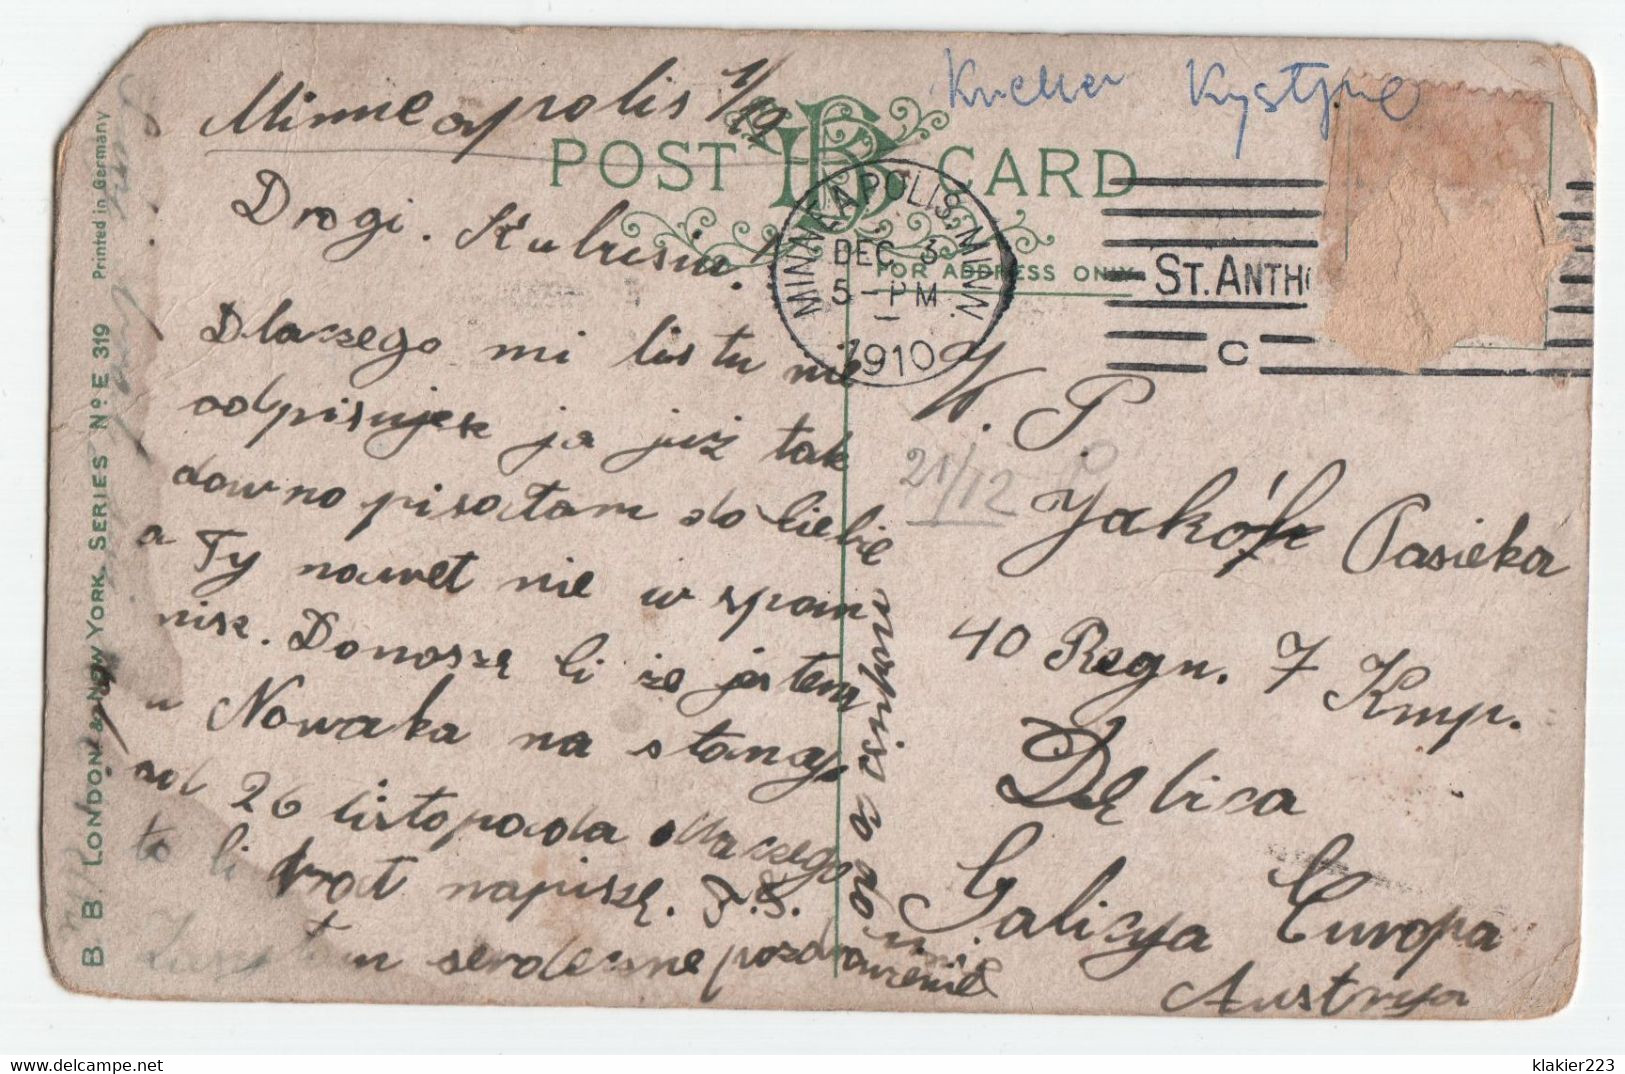 Minneapolis 1/12
Drogi. Kubusiu!
Dlaczego mi listu nie
odpisujesz ja już tak
dawno pisałam do Ciebie
a Ty nawet nie wspom
nisz. Donoszę Ci że jestem
u Nowaka na stancyi
od 26 listopada dlaczego
to Ci brat napiszę. J. S.
serdeczne pozdrowienie
POST CARD
FOR ADDRESS ONLY
MINNEAPOLIS, MINN.
DEC 3
5 - PM
1910
ST. ANTH
C
Krystyne
W. P.
21/12
Jakób Pasieka
40 Regn. 7 Kmp.
Dębica
Galicya Europa
Austrya
B. B. LONDON & NEW YORK. SERIES Nº E 319 Printed in Germany
klakier223